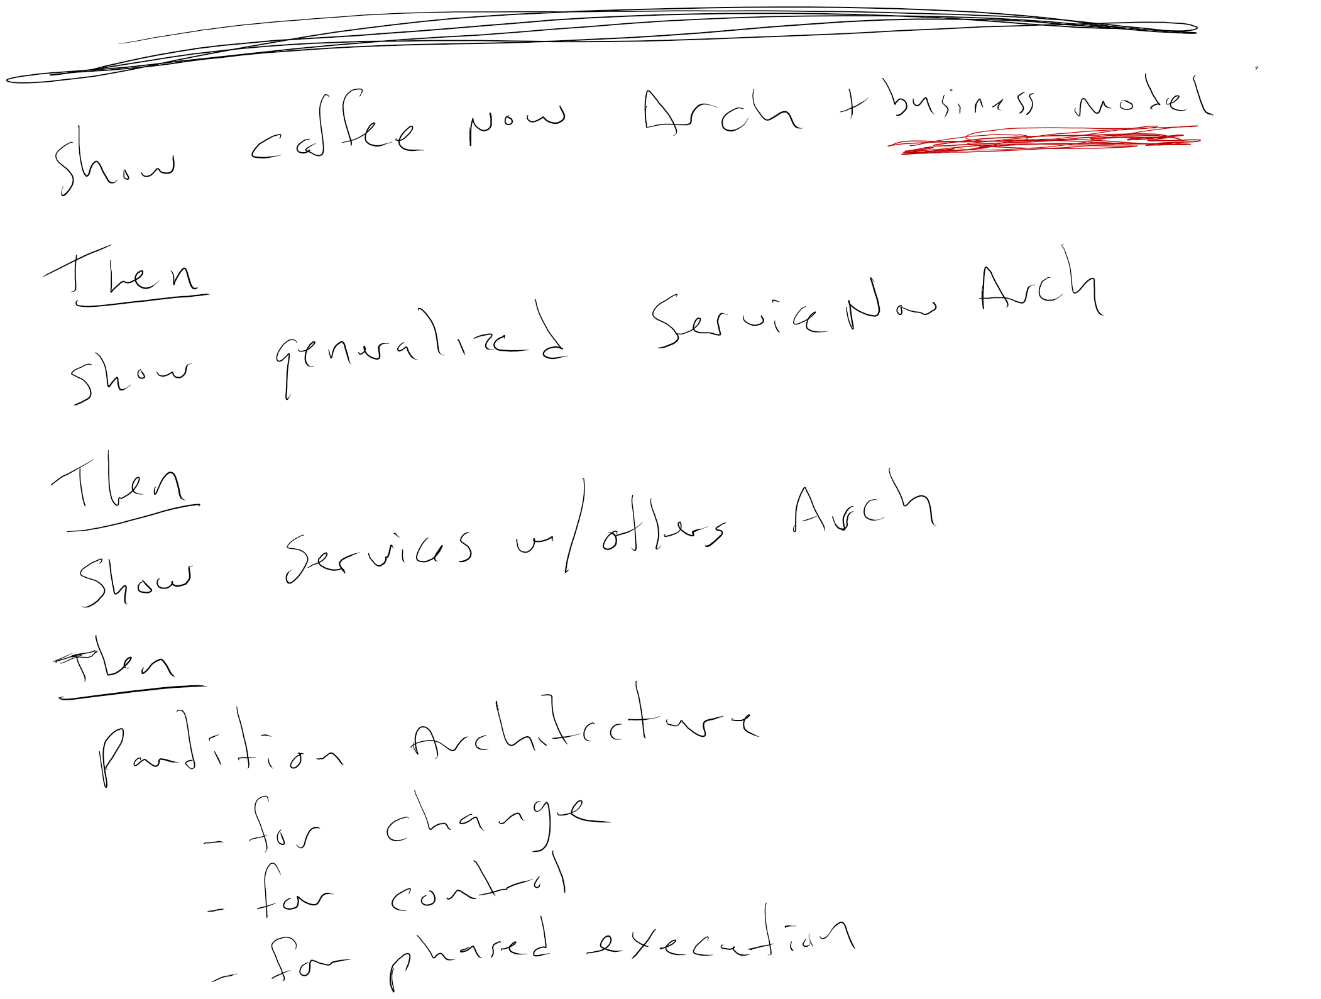 show coffee Now Arch + business model
Then
show generalized ServiceNow Arch
Then
Show Services w/others Arch
Then
Partition Architecture
- for change
- for control
- for phased execution